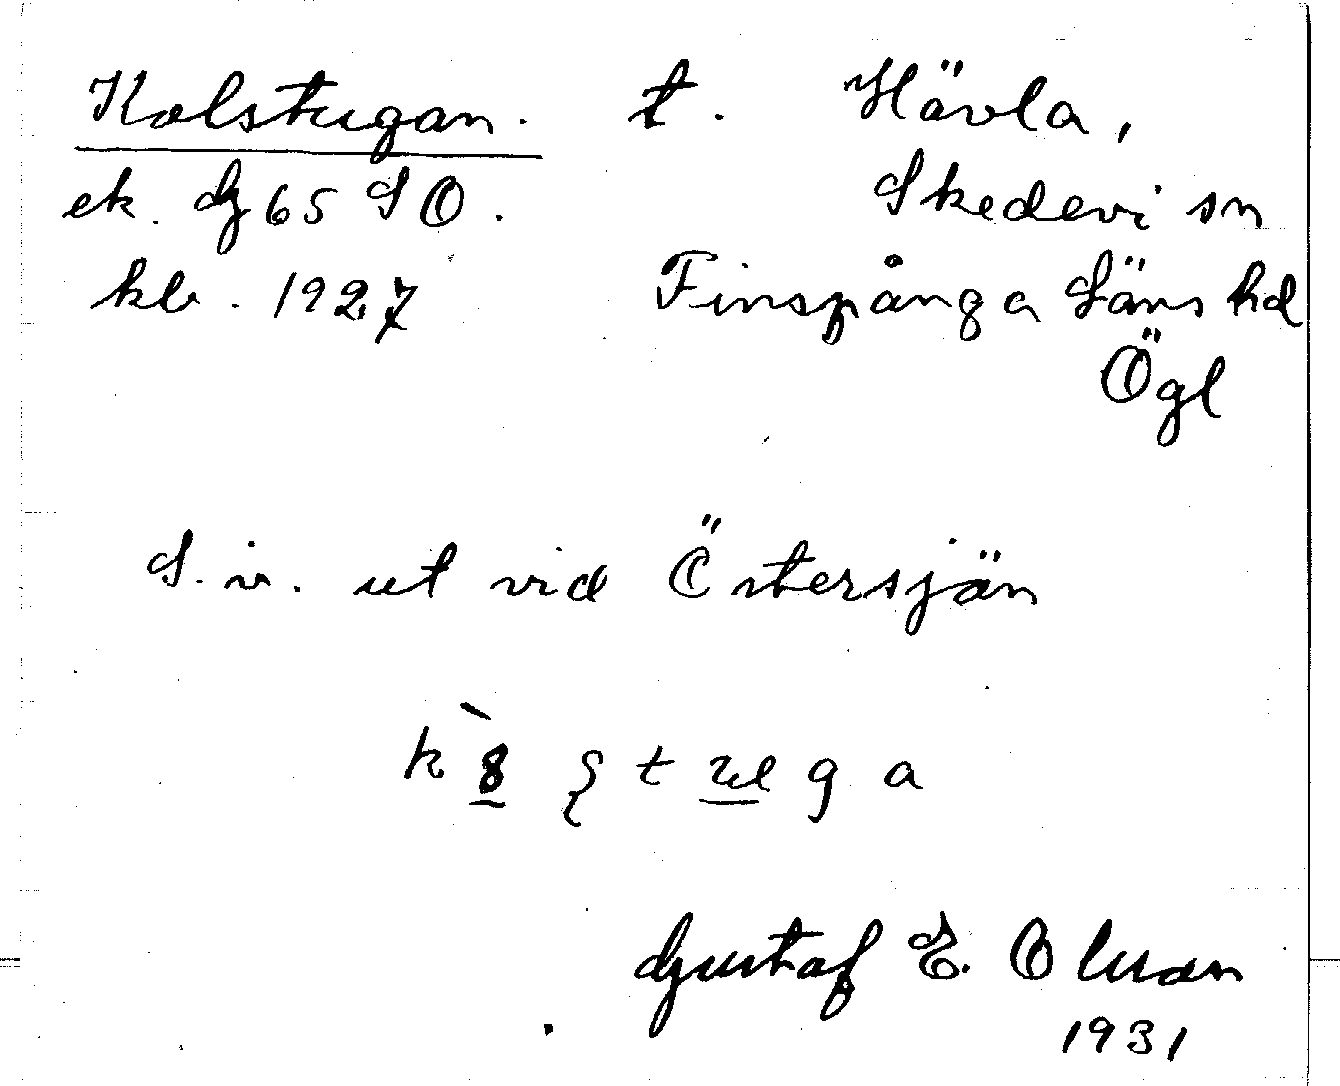 Kolstugan. t. Hävla,
ek. Gg 65 SO. Skedevi sn
kb. 1927 Finspånga Läns hd
Ögl
S. v. ut vid Östersjön
Gustaf E. Olsson
1931